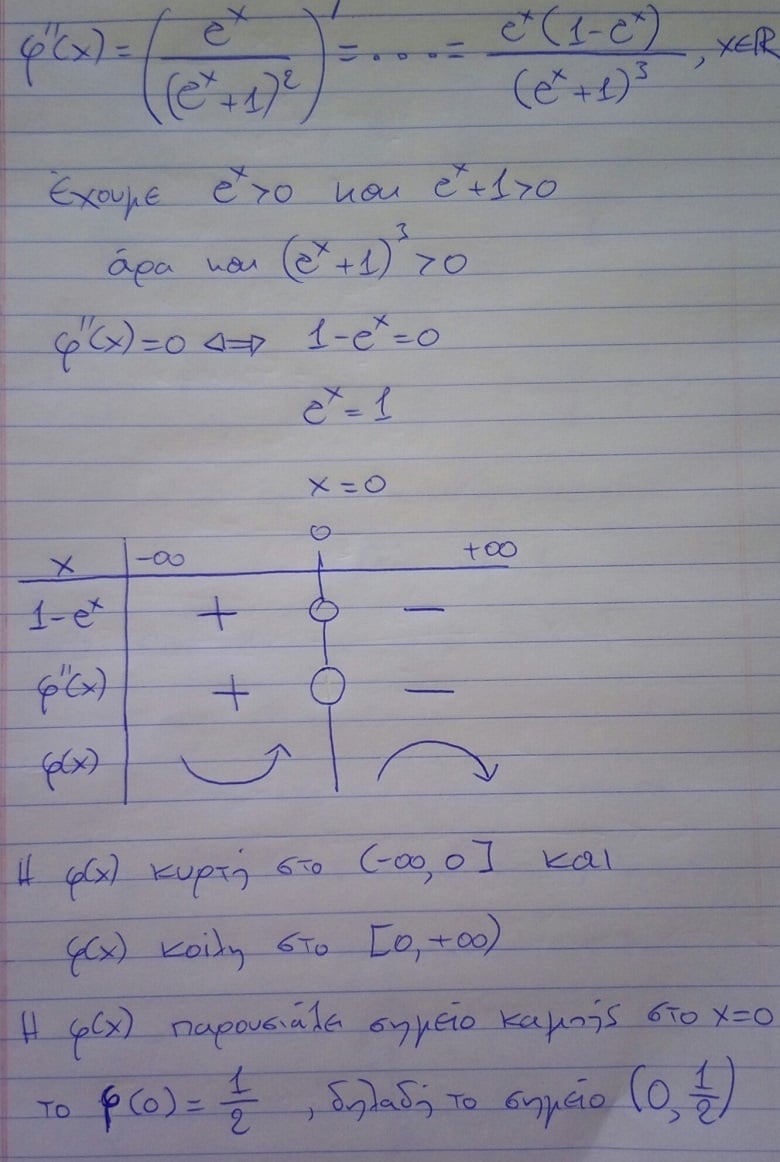 φ''(x) = (e^x / (e^x+1)^2)' = .... = e^x(1-e^x) / (e^x+1)^3 , x∈ℝ
Έχουμε e^x>0 και e^x+1>0
άρα και (e^x+1)^3 >0
φ''(x)=0 ⇔ 1-e^x=0
e^x=1
x=0
x -∞ 0 +∞
1-e^x + 0 -
φ''(x) + 0 -
φ(x)
Η φ(x) κυρτή στο (-∞,0] και
φ(x) κοίλη στο [0,+∞)
Η φ(x) παρουσιάζει σημείο καμπής στο x=0
το φ(0)= 1/2 , δηλαδή το σημείο (0, 1/2)